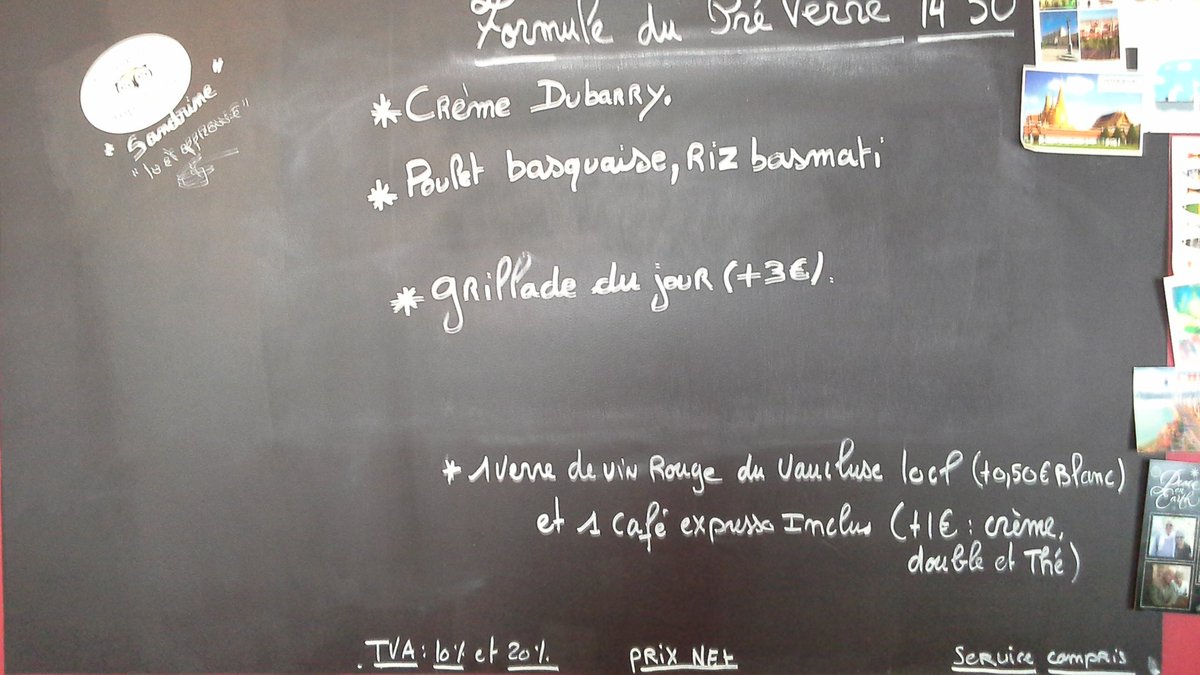 Formule du Pré Verre 14 50
* Crème Dubarry.
* Poulet basquaise, Riz basmati
* Grillade du jour (+3€).
* 1 verre de vin Rouge du Vaucluse 10cl (+0,50€ Blanc)
et 1 café expresso Inclus (+1€ : crème,
double et Thé)
TVA : 10% et 20%. PRIX NET Service compris
"Sandrine"